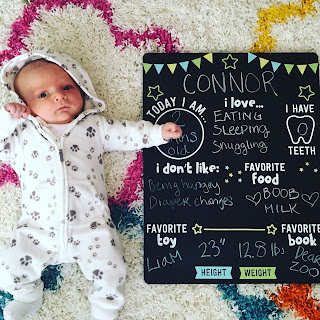 CONNOR
TODAY I AM...
2
months
old
i love...
EATING
Sleeping
Snuggling
I HAVE
0
TEETH
i don't like:
Being hungry
Diaper changes
FAVORITE
food
BOOB
MILK
FAVORITE
toy
Liam
23"
HEIGHT
12.8 lbs
WEIGHT
FAVORITE
book
Dear
Zoo